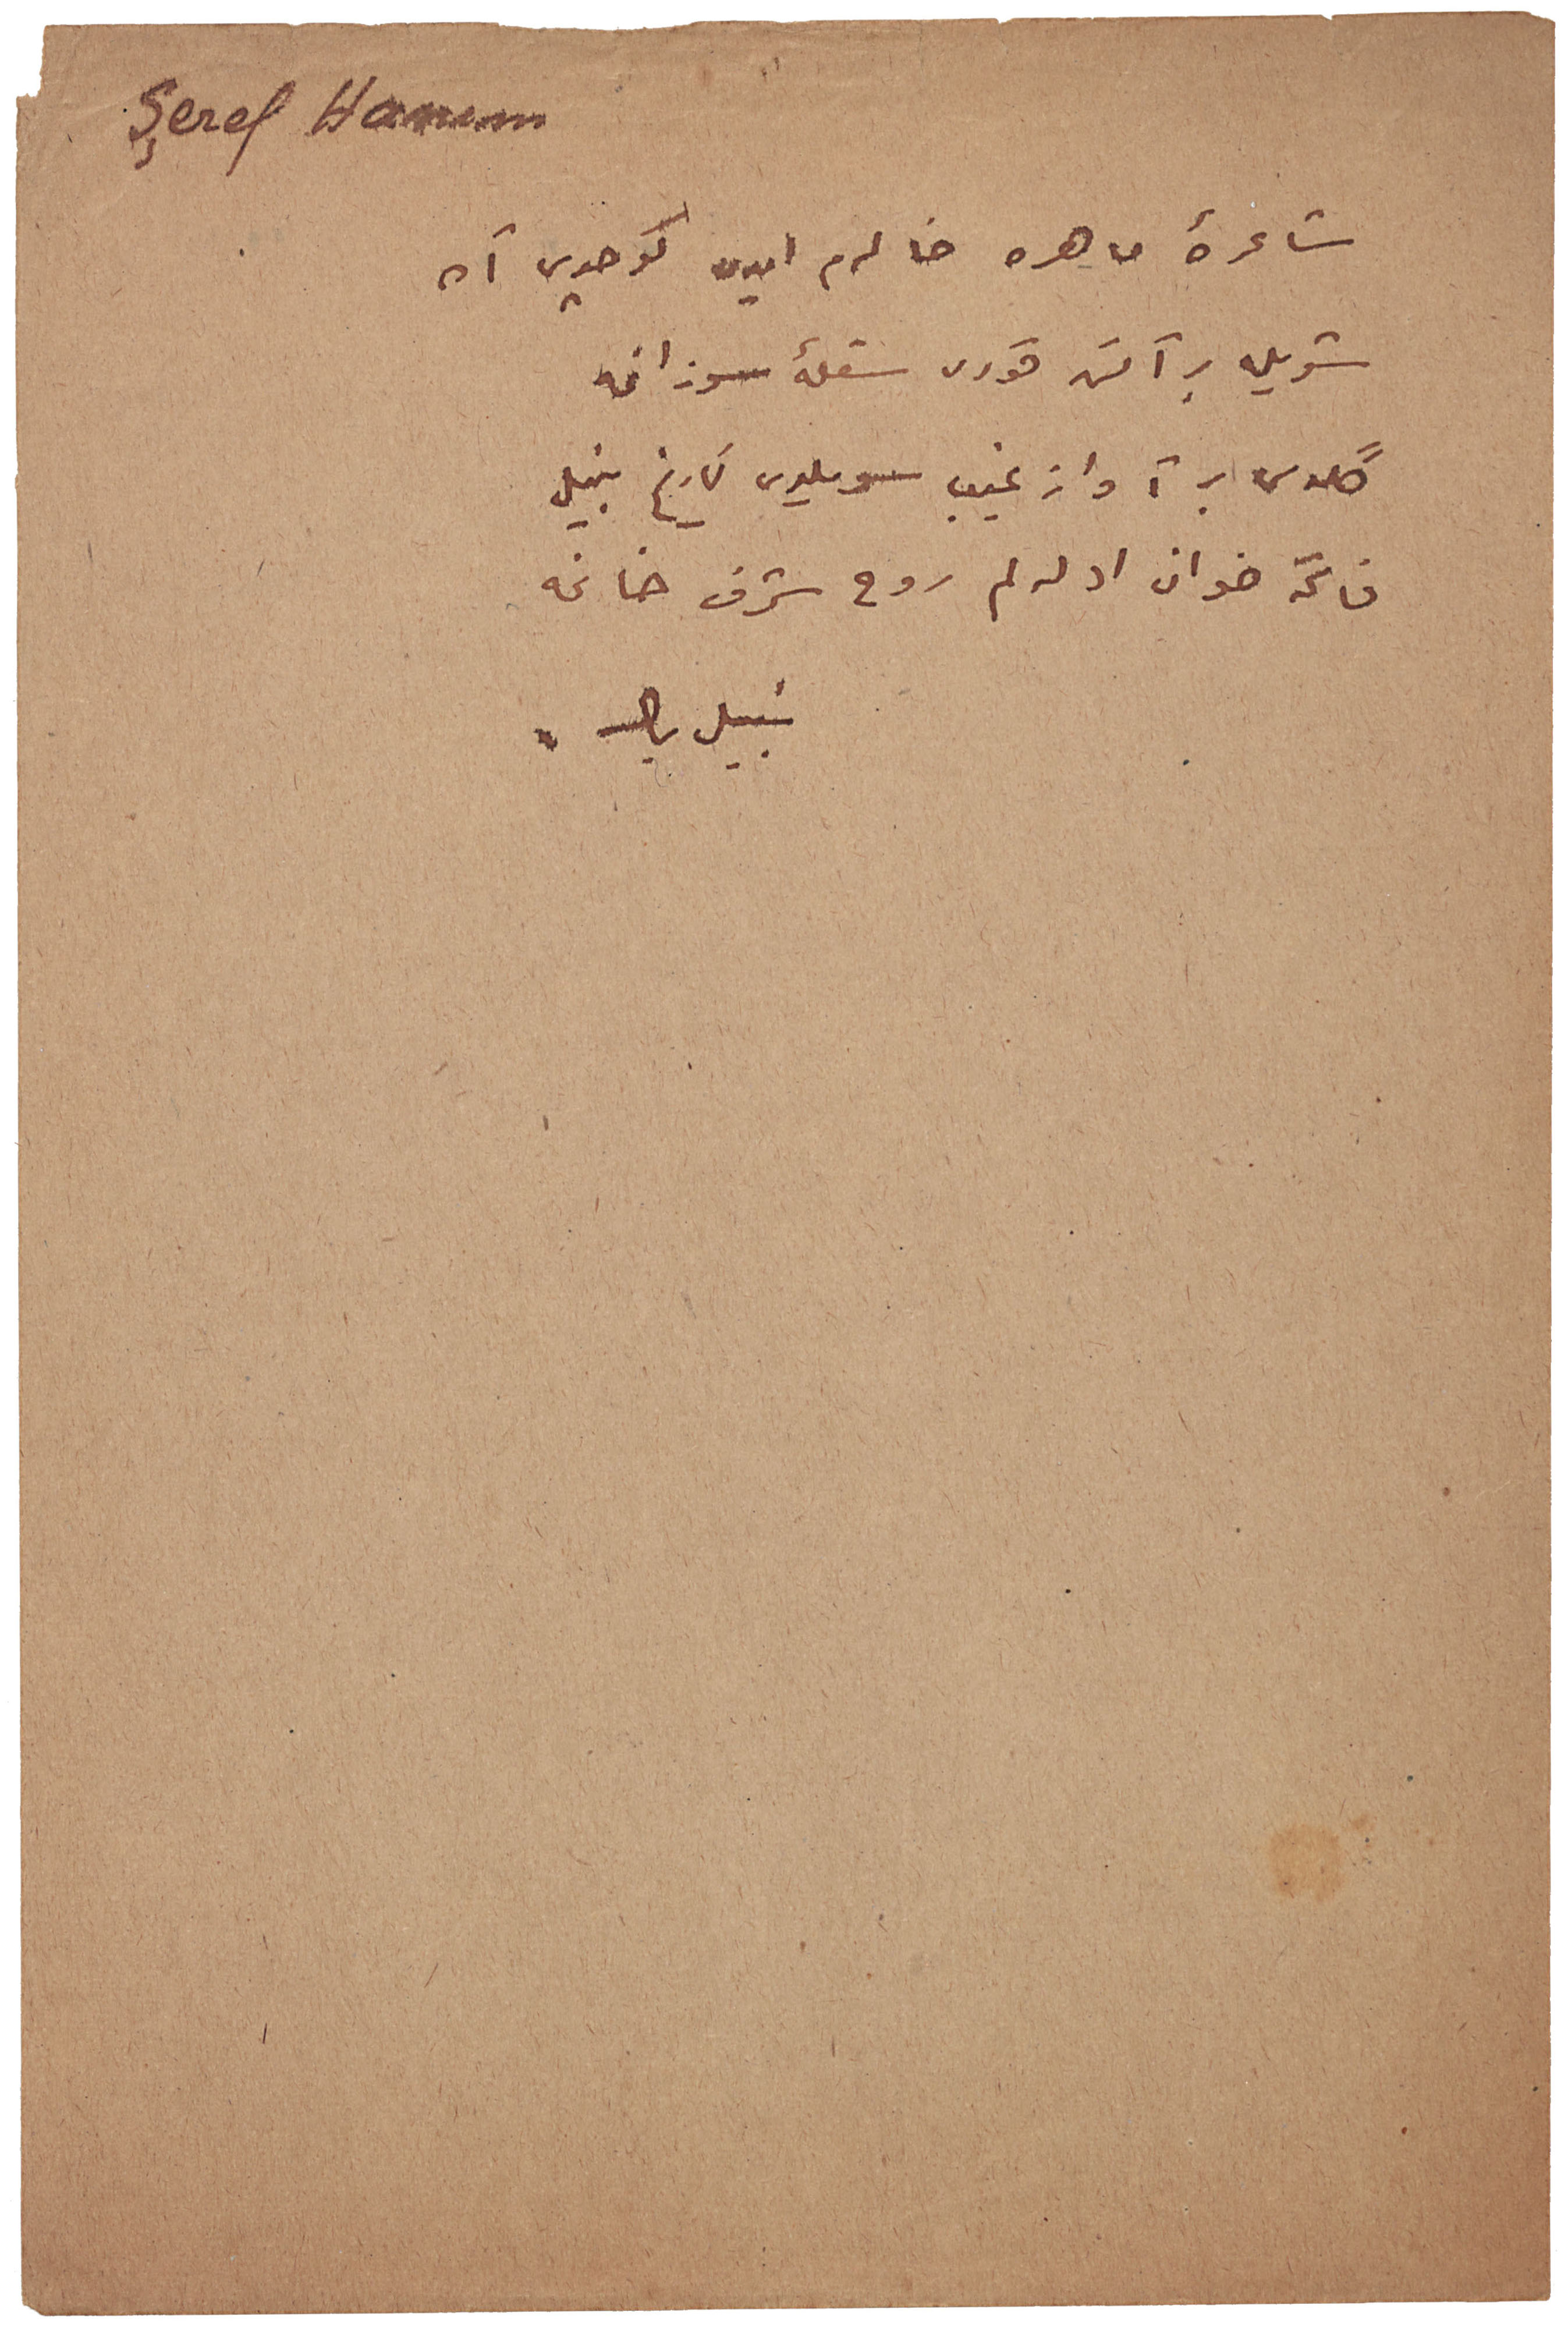 Şeref Hanım
شاعرهٔ ماهره خاله‌م ایدی کوچدی آه
شویله بر آتش قودی شعلهٔ سوزانمه
گلدی بر آواز غیب سویلدی تاریخ نبیل
فاتحه خوان اوله‌لم روح شرف خانمه
نبیل بك